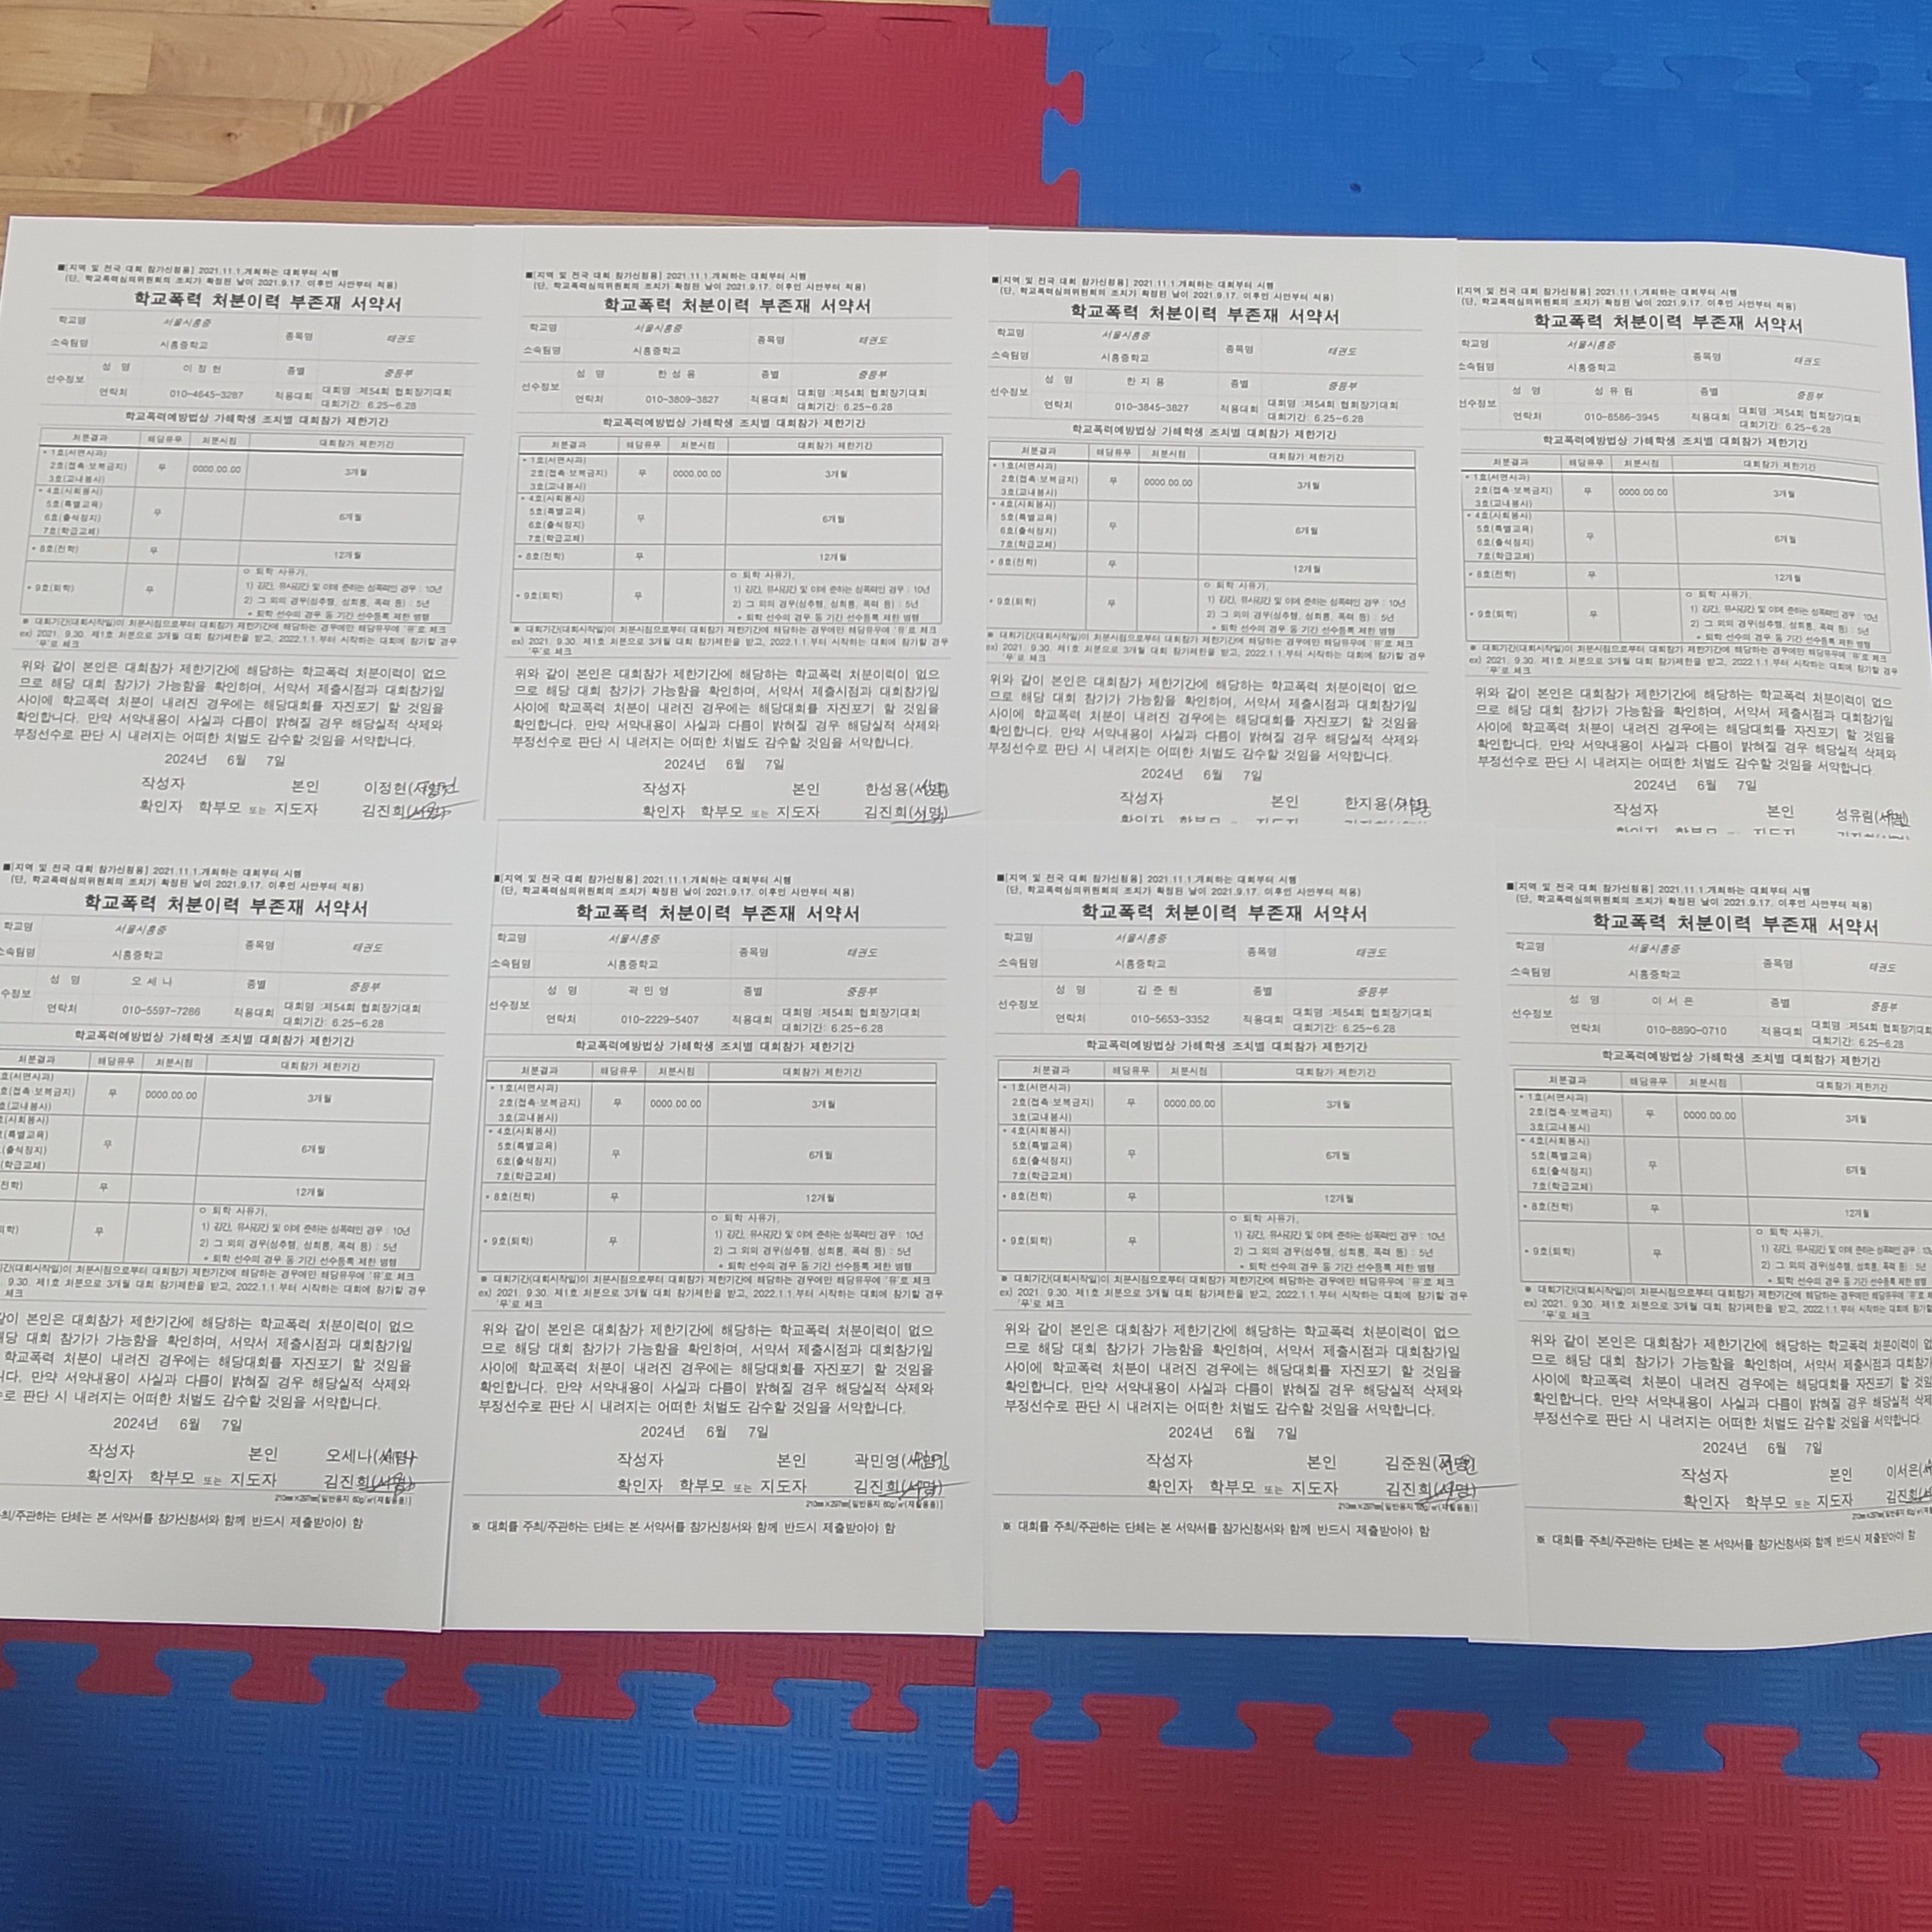 ■[지역 및 전국 대회 참가신청용] 2021.11.1.개최하는 대회부터 시행
(단, 학교폭력심의위원회의 조치가 확정된 날이 2021.9.17. 이후인 사안부터 적용)
학교폭력 처분이력 부존재 서약서
학교명 서울시흥중 종목명 태권도
소속팀명 시흥중학교
선수정보 성 명 이 정 현 종별 중등부
연락처 010-4645-3287 적용대회 대회명 :제54회 협회장기대회
대회기간: 6.25~6.28
학교폭력예방법상 가해학생 조치별 대회참가 제한기간
처분결과 해당유무 처분시점 대회참가 제한기간
* 1호(서면사과)
2호(접촉·보복금지) 무 0000.00.00 3개월
3호(교내봉사)
* 4호(사회봉사)
5호(특별교육) 무 6개월
6호(출석정지)
7호(학급교체)
* 8호(전학) 무 12개월
* 9호(퇴학) 무 ㅇ 퇴학 사유가,
1) 강간, 유사강간 및 이에 준하는 성폭력인 경우 : 10년
2) 그 외의 경우(성추행, 성희롱, 폭력 등) : 5년
* 퇴학 선수의 경우 동 기간 선수등록 제한 병행
※ 대회기간(대회시작일)이 처분시점으로부터 대회참가 제한기간에 해당하는 경우에만 해당유무에 '유'로 체크
ex) 2021. 9.30. 제1호 처분으로 3개월 대회 참가제한을 받고, 2022.1.1.부터 시작하는 대회에 참가할 경우
'무'로 체크
위와 같이 본인은 대회참가 제한기간에 해당하는 학교폭력 처분이력이 없으
므로 해당 대회 참가가 가능함을 확인하며, 서약서 제출시점과 대회참가일
사이에 학교폭력 처분이 내려진 경우에는 해당대회를 자진포기 할 것임을
확인합니다. 만약 서약내용이 사실과 다름이 밝혀질 경우 해당실적 삭제와
부정선수로 판단 시 내려지는 어떠한 처벌도 감수할 것임을 서약합니다.
2024년 6월 7일
작성자 본인 이정현(서명)
확인자 학부모 또는 지도자 김진희(서명)
■[지역 및 전국 대회 참가신청용] 2021.11.1.개최하는 대회부터 시행
(단, 학교폭력심의위원회의 조치가 확정된 날이 2021.9.17. 이후인 사안부터 적용)
학교폭력 처분이력 부존재 서약서
학교명 서울시흥중 종목명 태권도
소속팀명 시흥중학교
선수정보 성 명 한 성 용 종별 중등부
연락처 010-3809-3827 적용대회 대회명 :제54회 협회장기대회
대회기간: 6.25~6.28
학교폭력예방법상 가해학생 조치별 대회참가 제한기간
처분결과 해당유무 처분시점 대회참가 제한기간
* 1호(서면사과)
2호(접촉·보복금지) 무 0000.00.00 3개월
3호(교내봉사)
* 4호(사회봉사)
5호(특별교육) 무 6개월
6호(출석정지)
7호(학급교체)
* 8호(전학) 무 12개월
* 9호(퇴학) 무 ㅇ 퇴학 사유가,
1) 강간, 유사강간 및 이에 준하는 성폭력인 경우 : 10년
2) 그 외의 경우(성추행, 성희롱, 폭력 등) : 5년
* 퇴학 선수의 경우 동 기간 선수등록 제한 병행
※ 대회기간(대회시작일)이 처분시점으로부터 대회참가 제한기간에 해당하는 경우에만 해당유무에 '유'로 체크
ex) 2021. 9.30. 제1호 처분으로 3개월 대회 참가제한을 받고, 2022.1.1.부터 시작하는 대회에 참가할 경우
'무'로 체크
위와 같이 본인은 대회참가 제한기간에 해당하는 학교폭력 처분이력이 없으
므로 해당 대회 참가가 가능함을 확인하며, 서약서 제출시점과 대회참가일
사이에 학교폭력 처분이 내려진 경우에는 해당대회를 자진포기 할 것임을
확인합니다. 만약 서약내용이 사실과 다름이 밝혀질 경우 해당실적 삭제와
부정선수로 판단 시 내려지는 어떠한 처벌도 감수할 것임을 서약합니다.
2024년 6월 7일
작성자 본인 한성용(서명)
확인자 학부모 또는 지도자 김진희(서명)
■[지역 및 전국 대회 참가신청용] 2021.11.1.개최하는 대회부터 시행
(단, 학교폭력심의위원회의 조치가 확정된 날이 2021.9.17. 이후인 사안부터 적용)
학교폭력 처분이력 부존재 서약서
학교명 서울시흥중 종목명 태권도
소속팀명 시흥중학교
선수정보 성 명 한 지 용 종별 중등부
연락처 010-3845-3827 적용대회 대회명 :제54회 협회장기대회
대회기간: 6.25~6.28
학교폭력예방법상 가해학생 조치별 대회참가 제한기간
처분결과 해당유무 처분시점 대회참가 제한기간
* 1호(서면사과)
2호(접촉·보복금지) 무 0000.00.00 3개월
3호(교내봉사)
* 4호(사회봉사)
5호(특별교육) 무 6개월
6호(출석정지)
7호(학급교체)
* 8호(전학) 무 12개월
* 9호(퇴학) 무 ㅇ 퇴학 사유가,
1) 강간, 유사강간 및 이에 준하는 성폭력인 경우 : 10년
2) 그 외의 경우(성추행, 성희롱, 폭력 등) : 5년
* 퇴학 선수의 경우 동 기간 선수등록 제한 병행
※ 대회기간(대회시작일)이 처분시점으로부터 대회참가 제한기간에 해당하는 경우에만 해당유무에 '유'로 체크
ex) 2021. 9.30. 제1호 처분으로 3개월 대회 참가제한을 받고, 2022.1.1.부터 시작하는 대회에 참가할 경우
'무'로 체크
위와 같이 본인은 대회참가 제한기간에 해당하는 학교폭력 처분이력이 없으
므로 해당 대회 참가가 가능함을 확인하며, 서약서 제출시점과 대회참가일
사이에 학교폭력 처분이 내려진 경우에는 해당대회를 자진포기 할 것임을
확인합니다. 만약 서약내용이 사실과 다름이 밝혀질 경우 해당실적 삭제와
부정선수로 판단 시 내려지는 어떠한 처벌도 감수할 것임을 서약합니다.
2024년 6월 7일
작성자 본인 한지용(서명)
[지역 및 전국 대회 참가신청용] 2021.11.1.개최하는 대회부터 시행
(단, 학교폭력심의위원회의 조치가 확정된 날이 2021.9.17. 이후인 사안부터 적용)
학교폭력 처분이력 부존재 서약서
학교명 서울시흥중 종목명 태권도
소속팀명 시흥중학교
선수정보 성 명 성 유 림 종별 중등부
연락처 010-8586-3945 적용대회 대회명 :제54회 협회장기대회
대회기간: 6.25~6.28
학교폭력예방법상 가해학생 조치별 대회참가 제한기간
처분결과 해당유무 처분시점 대회참가 제한기간
* 1호(서면사과)
2호(접촉·보복금지) 무 0000.00.00 3개월
3호(교내봉사)
* 4호(사회봉사)
5호(특별교육) 무 6개월
6호(출석정지)
7호(학급교체)
* 8호(전학) 무 12개월
* 9호(퇴학) 무 ㅇ 퇴학 사유가,
1) 강간, 유사강간 및 이에 준하는 성폭력인 경우 : 10년
2) 그 외의 경우(성추행, 성희롱, 폭력 등) : 5년
* 퇴학 선수의 경우 동 기간 선수등록 제한 병행
※ 대회기간(대회시작일)이 처분시점으로부터 대회참가 제한기간에 해당하는 경우에만 해당유무에 '유'로 체크
ex) 2021. 9.30. 제1호 처분으로 3개월 대회 참가제한을 받고, 2022.1.1.부터 시작하는 대회에 참가할 경우
'무'로 체크
위와 같이 본인은 대회참가 제한기간에 해당하는 학교폭력 처분이력이 없으
므로 해당 대회 참가가 가능함을 확인하며, 서약서 제출시점과 대회참가일
사이에 학교폭력 처분이 내려진 경우에는 해당대회를 자진포기 할 것임을
확인합니다. 만약 서약내용이 사실과 다름이 밝혀질 경우 해당실적 삭제와
부정선수로 판단 시 내려지는 어떠한 처벌도 감수할 것임을 서약합니다.
2024년 6월 7일
작성자 본인 성유림(서명)
■[지역 및 전국 대회 참가신청용] 2021.11.1.개최하는 대회부터 시행
(단, 학교폭력심의위원회의 조치가 확정된 날이 2021.9.17. 이후인 사안부터 적용)
학교폭력 처분이력 부존재 서약서
학교명 서울시흥중 종목명 태권도
소속팀명 시흥중학교
수정보 성 명 오 세 나 종별 중등부
연락처 010-5597-7286 적용대회 대회명 :제54회 협회장기대회
대회기간: 6.25~6.28
학교폭력예방법상 가해학생 조치별 대회참가 제한기간
처분결과 해당유무 처분시점 대회참가 제한기간
호(서면사과)
호(접촉·보복금지) 무 0000.00.00 3개월
호(교내봉사)
(사회봉사)
(특별교육) 무 6개월
(출석정지)
(학급교체)
전학) 무 12개월
학) 무 ㅇ 퇴학 사유가,
1) 강간, 유사강간 및 이에 준하는 성폭력인 경우 : 10년
2) 그 외의 경우(성추행, 성희롱, 폭력 등) : 5년
* 퇴학 선수의 경우 동 기간 선수등록 제한 병행
간(대회시작일)이 처분시점으로부터 대회참가 제한기간에 해당하는 경우에만 해당유무에 '유'로 체크
9.30. 제1호 처분으로 3개월 대회 참가제한을 받고, 2022.1.1.부터 시작하는 대회에 참가할 경우
체크
같이 본인은 대회참가 제한기간에 해당하는 학교폭력 처분이력이 없으
해당 대회 참가가 가능함을 확인하며, 서약서 제출시점과 대회참가일
학교폭력 처분이 내려진 경우에는 해당대회를 자진포기 할 것임을
니다. 만약 서약내용이 사실과 다름이 밝혀질 경우 해당실적 삭제와
로 판단 시 내려지는 어떠한 처벌도 감수할 것임을 서약합니다.
2024년 6월 7일
작성자 본인 오세나(서명)
확인자 학부모 또는 지도자 김진희(서명)
210mm×297mm[일반용지 60g/㎡(재활용품)]
최/주관하는 단체는 본 서약서를 참가신청서와 함께 반드시 제출받아야 함
■[지역 및 전국 대회 참가신청용] 2021.11.1.개최하는 대회부터 시행
(단, 학교폭력심의위원회의 조치가 확정된 날이 2021.9.17. 이후인 사안부터 적용)
학교폭력 처분이력 부존재 서약서
학교명 서울시흥중 종목명 태권도
소속팀명 시흥중학교
선수정보 성 명 곽 민 영 종별 중등부
연락처 010-2229-5407 적용대회 대회명 :제54회 협회장기대회
대회기간: 6.25~6.28
학교폭력예방법상 가해학생 조치별 대회참가 제한기간
처분결과 해당유무 처분시점 대회참가 제한기간
* 1호(서면사과)
2호(접촉·보복금지) 무 0000.00.00 3개월
3호(교내봉사)
* 4호(사회봉사)
5호(특별교육) 무 6개월
6호(출석정지)
7호(학급교체)
* 8호(전학) 무 12개월
* 9호(퇴학) 무 ㅇ 퇴학 사유가,
1) 강간, 유사강간 및 이에 준하는 성폭력인 경우 : 10년
2) 그 외의 경우(성추행, 성희롱, 폭력 등) : 5년
* 퇴학 선수의 경우 동 기간 선수등록 제한 병행
※ 대회기간(대회시작일)이 처분시점으로부터 대회참가 제한기간에 해당하는 경우에만 해당유무에 '유'로 체크
ex) 2021. 9.30. 제1호 처분으로 3개월 대회 참가제한을 받고, 2022.1.1.부터 시작하는 대회에 참가할 경우
'무'로 체크
위와 같이 본인은 대회참가 제한기간에 해당하는 학교폭력 처분이력이 없으
므로 해당 대회 참가가 가능함을 확인하며, 서약서 제출시점과 대회참가일
사이에 학교폭력 처분이 내려진 경우에는 해당대회를 자진포기 할 것임을
확인합니다. 만약 서약내용이 사실과 다름이 밝혀질 경우 해당실적 삭제와
부정선수로 판단 시 내려지는 어떠한 처벌도 감수할 것임을 서약합니다.
2024년 6월 7일
작성자 본인 곽민영(서명)
확인자 학부모 또는 지도자 김진희(서명)
210mm×297mm[일반용지 60g/㎡(재활용품)]
※ 대회를 주최/주관하는 단체는 본 서약서를 참가신청서와 함께 반드시 제출받아야 함
■[지역 및 전국 대회 참가신청용] 2021.11.1.개최하는 대회부터 시행
(단, 학교폭력심의위원회의 조치가 확정된 날이 2021.9.17. 이후인 사안부터 적용)
학교폭력 처분이력 부존재 서약서
학교명 서울시흥중 종목명 태권도
소속팀명 시흥중학교
선수정보 성 명 김 준 원 종별 중등부
연락처 010-5653-3352 적용대회 대회명 :제54회 협회장기대회
대회기간: 6.25~6.28
학교폭력예방법상 가해학생 조치별 대회참가 제한기간
처분결과 해당유무 처분시점 대회참가 제한기간
* 1호(서면사과)
2호(접촉·보복금지) 무 0000.00.00 3개월
3호(교내봉사)
* 4호(사회봉사)
5호(특별교육) 무 6개월
6호(출석정지)
7호(학급교체)
* 8호(전학) 무 12개월
* 9호(퇴학) 무 ㅇ 퇴학 사유가,
1) 강간, 유사강간 및 이에 준하는 성폭력인 경우 : 10년
2) 그 외의 경우(성추행, 성희롱, 폭력 등) : 5년
* 퇴학 선수의 경우 동 기간 선수등록 제한 병행
※ 대회기간(대회시작일)이 처분시점으로부터 대회참가 제한기간에 해당하는 경우에만 해당유무에 '유'로 체크
ex) 2021. 9.30. 제1호 처분으로 3개월 대회 참가제한을 받고, 2022.1.1.부터 시작하는 대회에 참가할 경우
'무'로 체크
위와 같이 본인은 대회참가 제한기간에 해당하는 학교폭력 처분이력이 없으
므로 해당 대회 참가가 가능함을 확인하며, 서약서 제출시점과 대회참가일
사이에 학교폭력 처분이 내려진 경우에는 해당대회를 자진포기 할 것임을
확인합니다. 만약 서약내용이 사실과 다름이 밝혀질 경우 해당실적 삭제와
부정선수로 판단 시 내려지는 어떠한 처벌도 감수할 것임을 서약합니다.
2024년 6월 7일
작성자 본인 김준원(서명)
확인자 학부모 또는 지도자 김진희(서명)
210mm×297mm[일반용지 60g/㎡(재활용품)]
※ 대회를 주최/주관하는 단체는 본 서약서를 참가신청서와 함께 반드시 제출받아야 함
■[지역 및 전국 대회 참가신청용] 2021.11.1.개최하는 대회부터 시행
(단, 학교폭력심의위원회의 조치가 확정된 날이 2021.9.17. 이후인 사안부터 적용)
학교폭력 처분이력 부존재 서약서
학교명 서울시흥중 종목명 태권도
소속팀명 시흥중학교
선수정보 성 명 이 서 은 종별 중등부
연락처 010-8890-0710 적용대회 대회명 :제54회 협회장기대회
대회기간: 6.25~6.28
학교폭력예방법상 가해학생 조치별 대회참가 제한기간
처분결과 해당유무 처분시점 대회참가 제한기간
* 1호(서면사과)
2호(접촉·보복금지) 무 0000.00.00 3개월
3호(교내봉사)
* 4호(사회봉사)
5호(특별교육) 무 6개월
6호(출석정지)
7호(학급교체)
* 8호(전학) 무 12개월
* 9호(퇴학) 무 ㅇ 퇴학 사유가,
1) 강간, 유사강간 및 이에 준하는 성폭력인 경우 : 10
2) 그 외의 경우(성추행, 성희롱, 폭력 등) : 5년
* 퇴학 선수의 경우 동 기간 선수등록 제한 병행
※ 대회기간(대회시작일)이 처분시점으로부터 대회참가 제한기간에 해당하는 경우에만 해당유무에 '유'로
ex) 2021. 9.30. 제1호 처분으로 3개월 대회 참가제한을 받고, 2022.1.1.부터 시작하는 대회에 참가할
'무'로 체크
위와 같이 본인은 대회참가 제한기간에 해당하는 학교폭력 처분이력이
므로 해당 대회 참가가 가능함을 확인하며, 서약서 제출시점과 대회참가
사이에 학교폭력 처분이 내려진 경우에는 해당대회를 자진포기 할 것임
확인합니다. 만약 서약내용이 사실과 다름이 밝혀질 경우 해당실적 삭제
부정선수로 판단 시 내려지는 어떠한 처벌도 감수할 것임을 서약합니다.
2024년 6월 7일
작성자 본인 이서은(서
확인자 학부모 또는 지도자 김진희(서
※ 대회를 주최/주관하는 단체는 본 서약서를 참가신청서와 함께 반드시 제출받아야 함